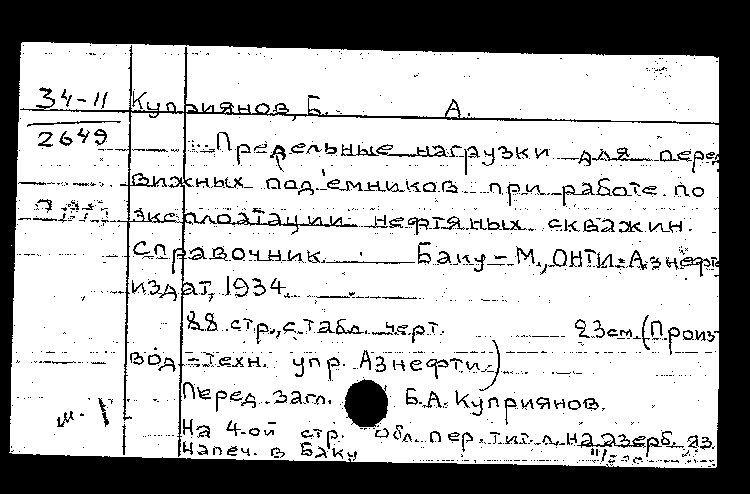 34-11 Куприянов, Б. А.
2649
Предельные нагрузки для перед
вижных под'емников при работе по
эксплоатации нефтяных скважин.
Справочник. Баку-М., ОНТИ=Азнефте
издат, 1934.
88 стр., с табл. черт. 23см. (Произ-
вод=техн. упр. Азнефти)
Перед загл. Б.А. Куприянов.
На 4-ой стр. Обл. пер. тит. л. на азерб. яз.
Напеч. в Баку